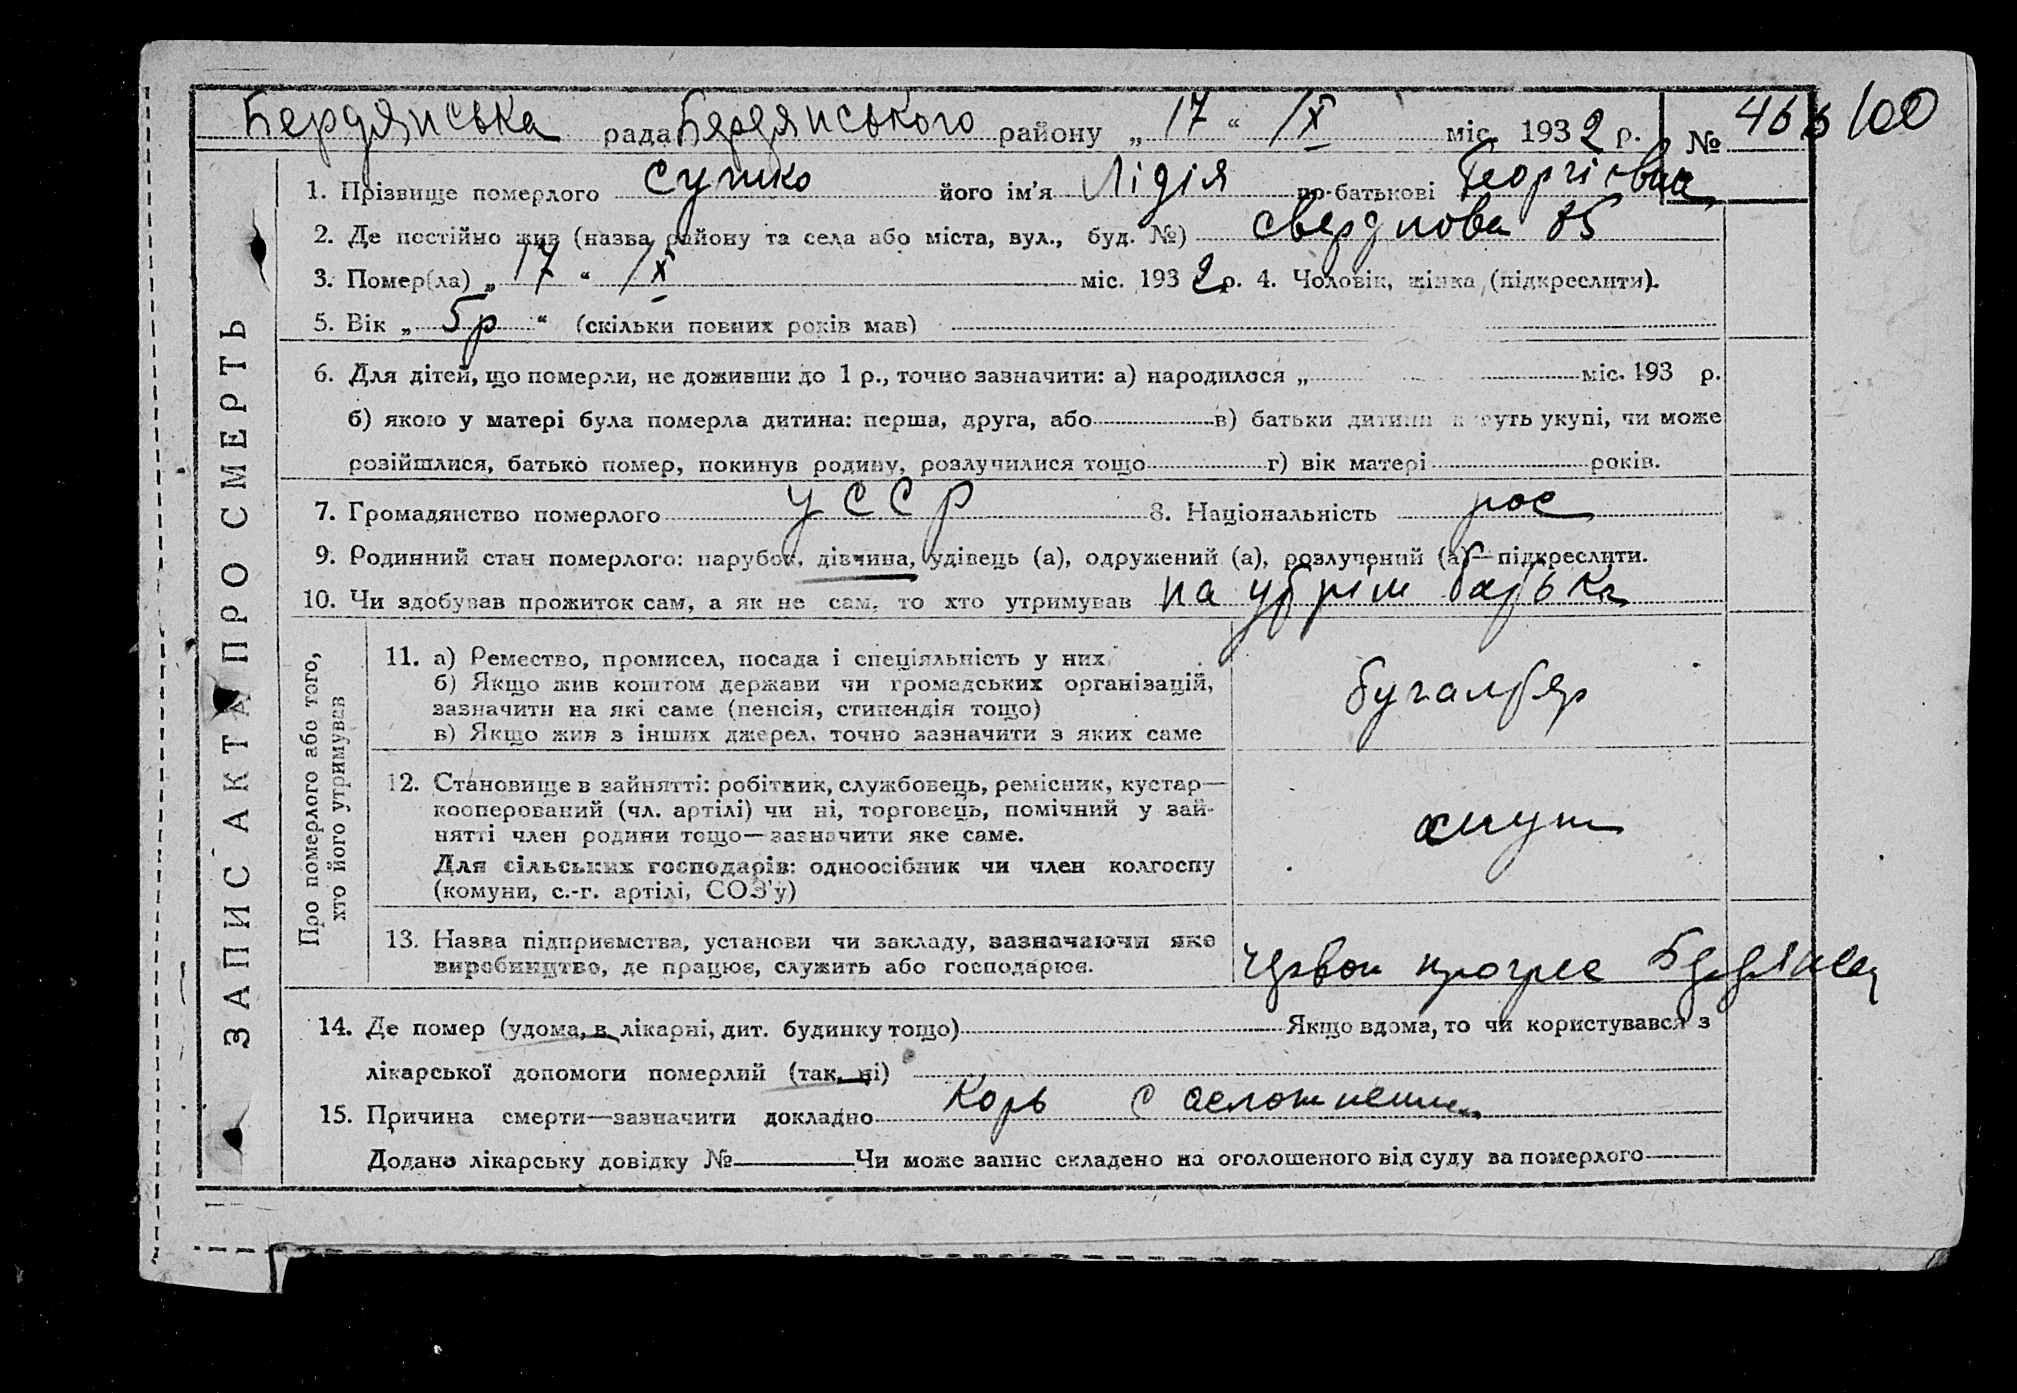 Бердянська рада Бердянського району „ 17 “ IX міс. 1932 р. № 466/00
1. Прізвище померлого Сушко його ім'я Лідія по-батькові Георгієвна
2. Де постійно жив (назва району та села або міста, вул., буд. №) Свердлова 85
3. Помер(ла) „ 17 “ IX міс. 1932 р. 4. Чоловік, жінка (підкреслити).
5. Вік „ 5 р “ (скільки повних років мав)
6. Для дітей, що померли, не доживши до 1 р., точно зазначити: а) народилося „ міс. 193 р.
б) якою у матері була померла дитина: перша, друга, або в) батьки дитини живуть укупі, чи може
розійшлися, батько помер, покинув родину, розлучилися тощо г) вік матері років.
7. Громадянство померлого УССР 8. Національність рос
9. Родинний стан померлого: парубок, дівчина, удівець (а), одружений (а), розлучений (а)—підкреслити.
10. Чи здобував прожиток сам, а як не сам, то хто утримував на утрім батька
ЗАПИС АКТА ПРО СМЕРТЬ
Про померлого або того,
хто його утримував
11. а) Ремество, промисел, посада і спеціяльність у них
б) Якщо жив коштом держави чи громадських організацій,
зазначити на які саме (пенсія, стипендія тощо)
в) Якщо жив з інших джерел, точно зазначити з яких саме
бугалтер
12. Становище в зайнятті: робітник, службовець, ремісник, кустар—
кооперований (чл. артілі) чи ні, торговець, помічний у зай-
нятті член родини тощо—зазначити яке саме.
Для сільських господарів: одноосібник чи член колгоспу
(комуни, с.-г. артілі, СОЗ'у)
13. Назва підприємства, установи чи закладу, зазначаючи яке
виробництво, де працює, служить або господарює.
Червон прогрес
14. Де помер (удома, в лікарні, дит. будинку тощо) Якщо вдома, то чи користувався з
лікарської допомоги померлий (так, ні)
15. Причина смерти—зазначити докладно Корь с осложнением
Додано лікарську довідку № Чи може запис складено на оголошеного від суду за померлого